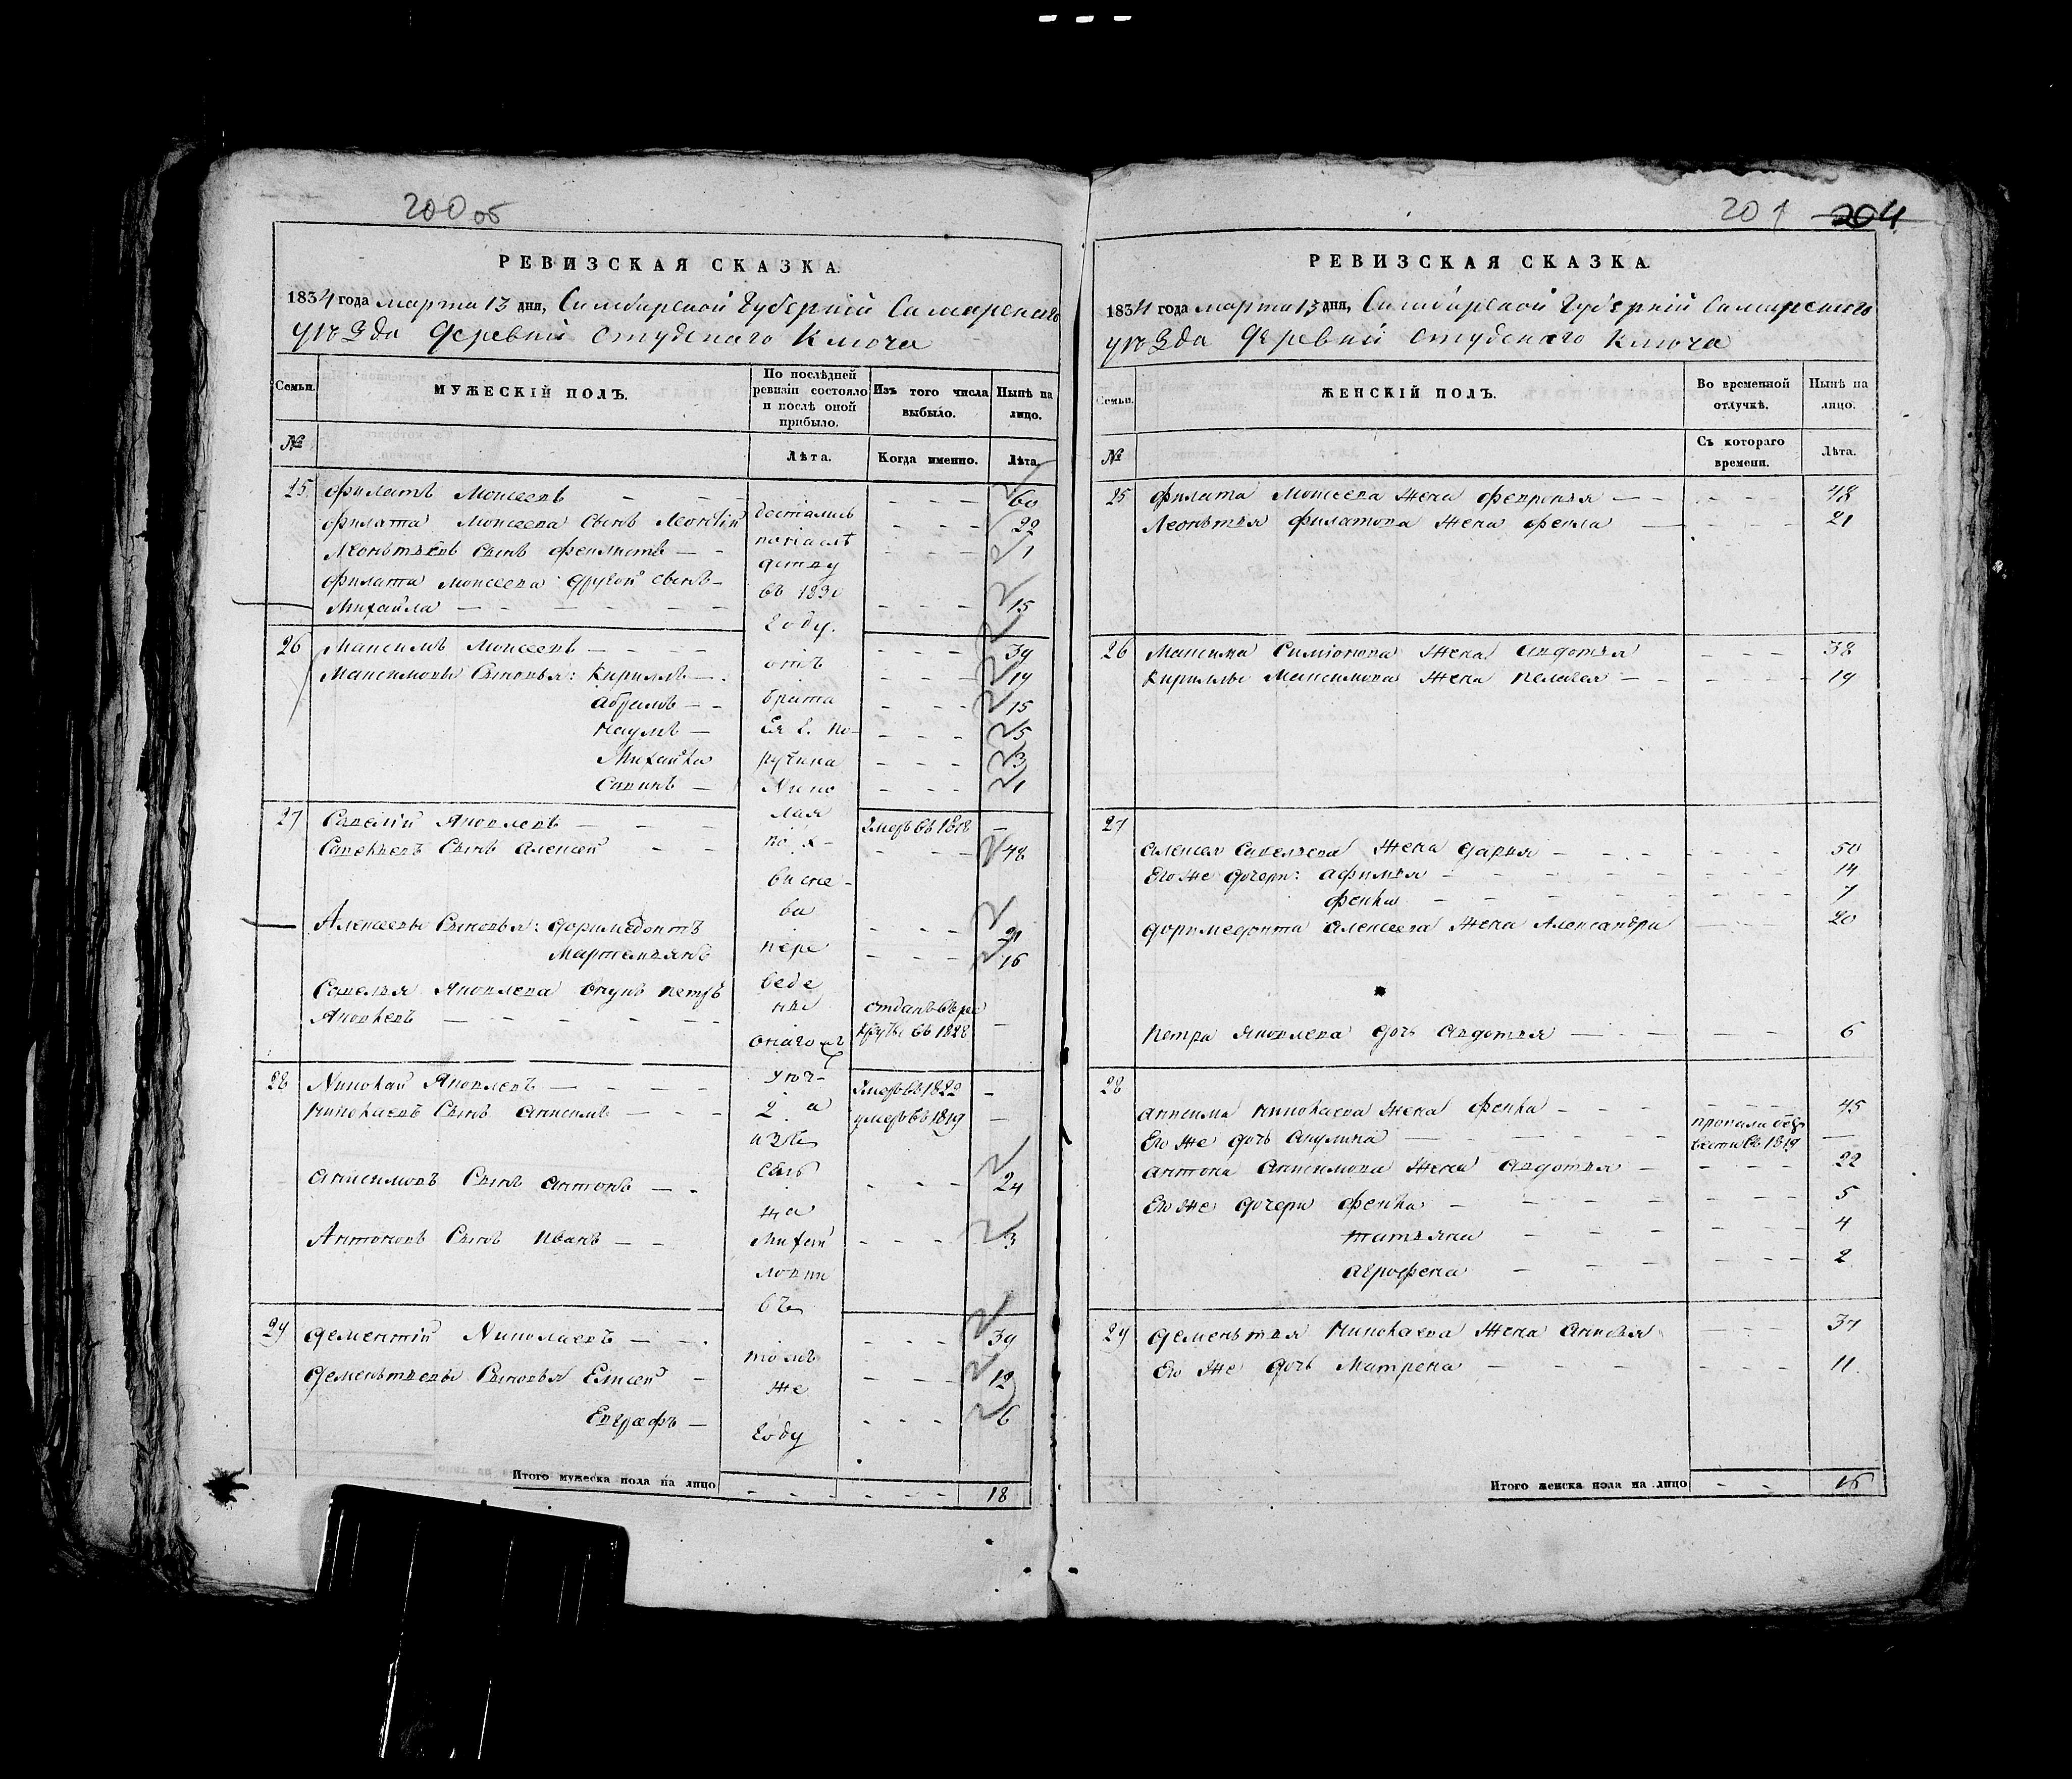 200 об
РЕВИЗСКАЯ СКАЗКА.
1834 года марта 13 дня, Симбирской Губернiи Самарскаго
уѣзда деревни Студенаго Ключа
Семьи.
МУЖЕСКIЙ ПОЛЪ.
По послѣдней ревизiи состояло и послѣ оной прибыло.
Изъ того числа выбыло.
Нынѣ на лицо.
№
Лѣта.
Когда именно.
Лѣта.
25 Филатъ Моисеевъ - - - 60
Филата Моисеева сынъ Леонтiй - - - 22
Леонтьевъ сынъ Феклистъ - - 1
Филата Моисеева другой сынъ -
Михайла - - - 15
26 Максимъ Моисеевъ - - - 39
Максимовы Сыновья: Кириллъ - 19
Абрамъ - - 15
Наумъ - 5
Михайла 3
Савинъ - 1
27 Савелiй Яковлевъ - - - умеръ въ 1818 -
Савельевъ Сынъ Алексей - - 48
Алексеевы Сыновья: Форимедонтъ 21
Мартемьянъ 16
Савелья Яковлева внукъ Петръ отданъ въ ре
Яковлевъ - - - круты въ 1828 -
28 Николай Яковлевъ - - - умеръ въ 1822 -
Николаевъ Сынъ Анисимъ - - - умеръ въ 1819 -
Анисимовъ Сынъ Антонъ - - 24
Антоновъ Сынъ Иванъ - - 3
29 Дементiй Николаевъ - - - 39
Дементьевы Сыновья Елисей - 12
Евграфъ - 6
достались
по
въ 183
году.
отъ
брата
Ея Г. по
ручика
Нико
лая
пере
веде
ны
изъ
на
Михай
ловки
въ
томъ
же
году
Итого мужеска пола на лицо - - - - - - 18
201 204
РЕВИЗСКАЯ СКАЗКА.
1834 года марта 13 дня, Симбирской Губернiи Самарскаго
уѣзда деревни Студенаго Ключа
Семьи.
ЖЕНСКIЙ ПОЛЪ.
Во временной отлучкѣ.
Нынѣ на лицо.
№
Съ котораго времени.
Лѣта.
25 Филата Моисеева жена Февронья - - - 48
Леонтья Филатова жена Фекла - 21
26 Максима Симiонова жена Авдотья - - - 38
Кириллы Максимова жена Пелагея - - - 19
27
Алексея Савельева жена Дарья - - - 50
Его же дочери: Афимья - - - 14
Фекла - - - 7
Форимедонта Алексеева жена Александра - - 20
Петра Яковлева дочь Авдотья - - - 6
28
Анисима Николаева жена Фекла - - - 45
Его же дочь Акулина - - - пропала безъ вести въ 1819 -
Антона Анисимова жена Авдотья - - - 22
Его же дочери Фекла - - - 5
Татьяна - - - 4
Агрофена - - - 2
29 Дементья Николаева жена Анисья - - 37
Его же дочь Матрена - - - 11
Итого женска пола на лицо - - 16